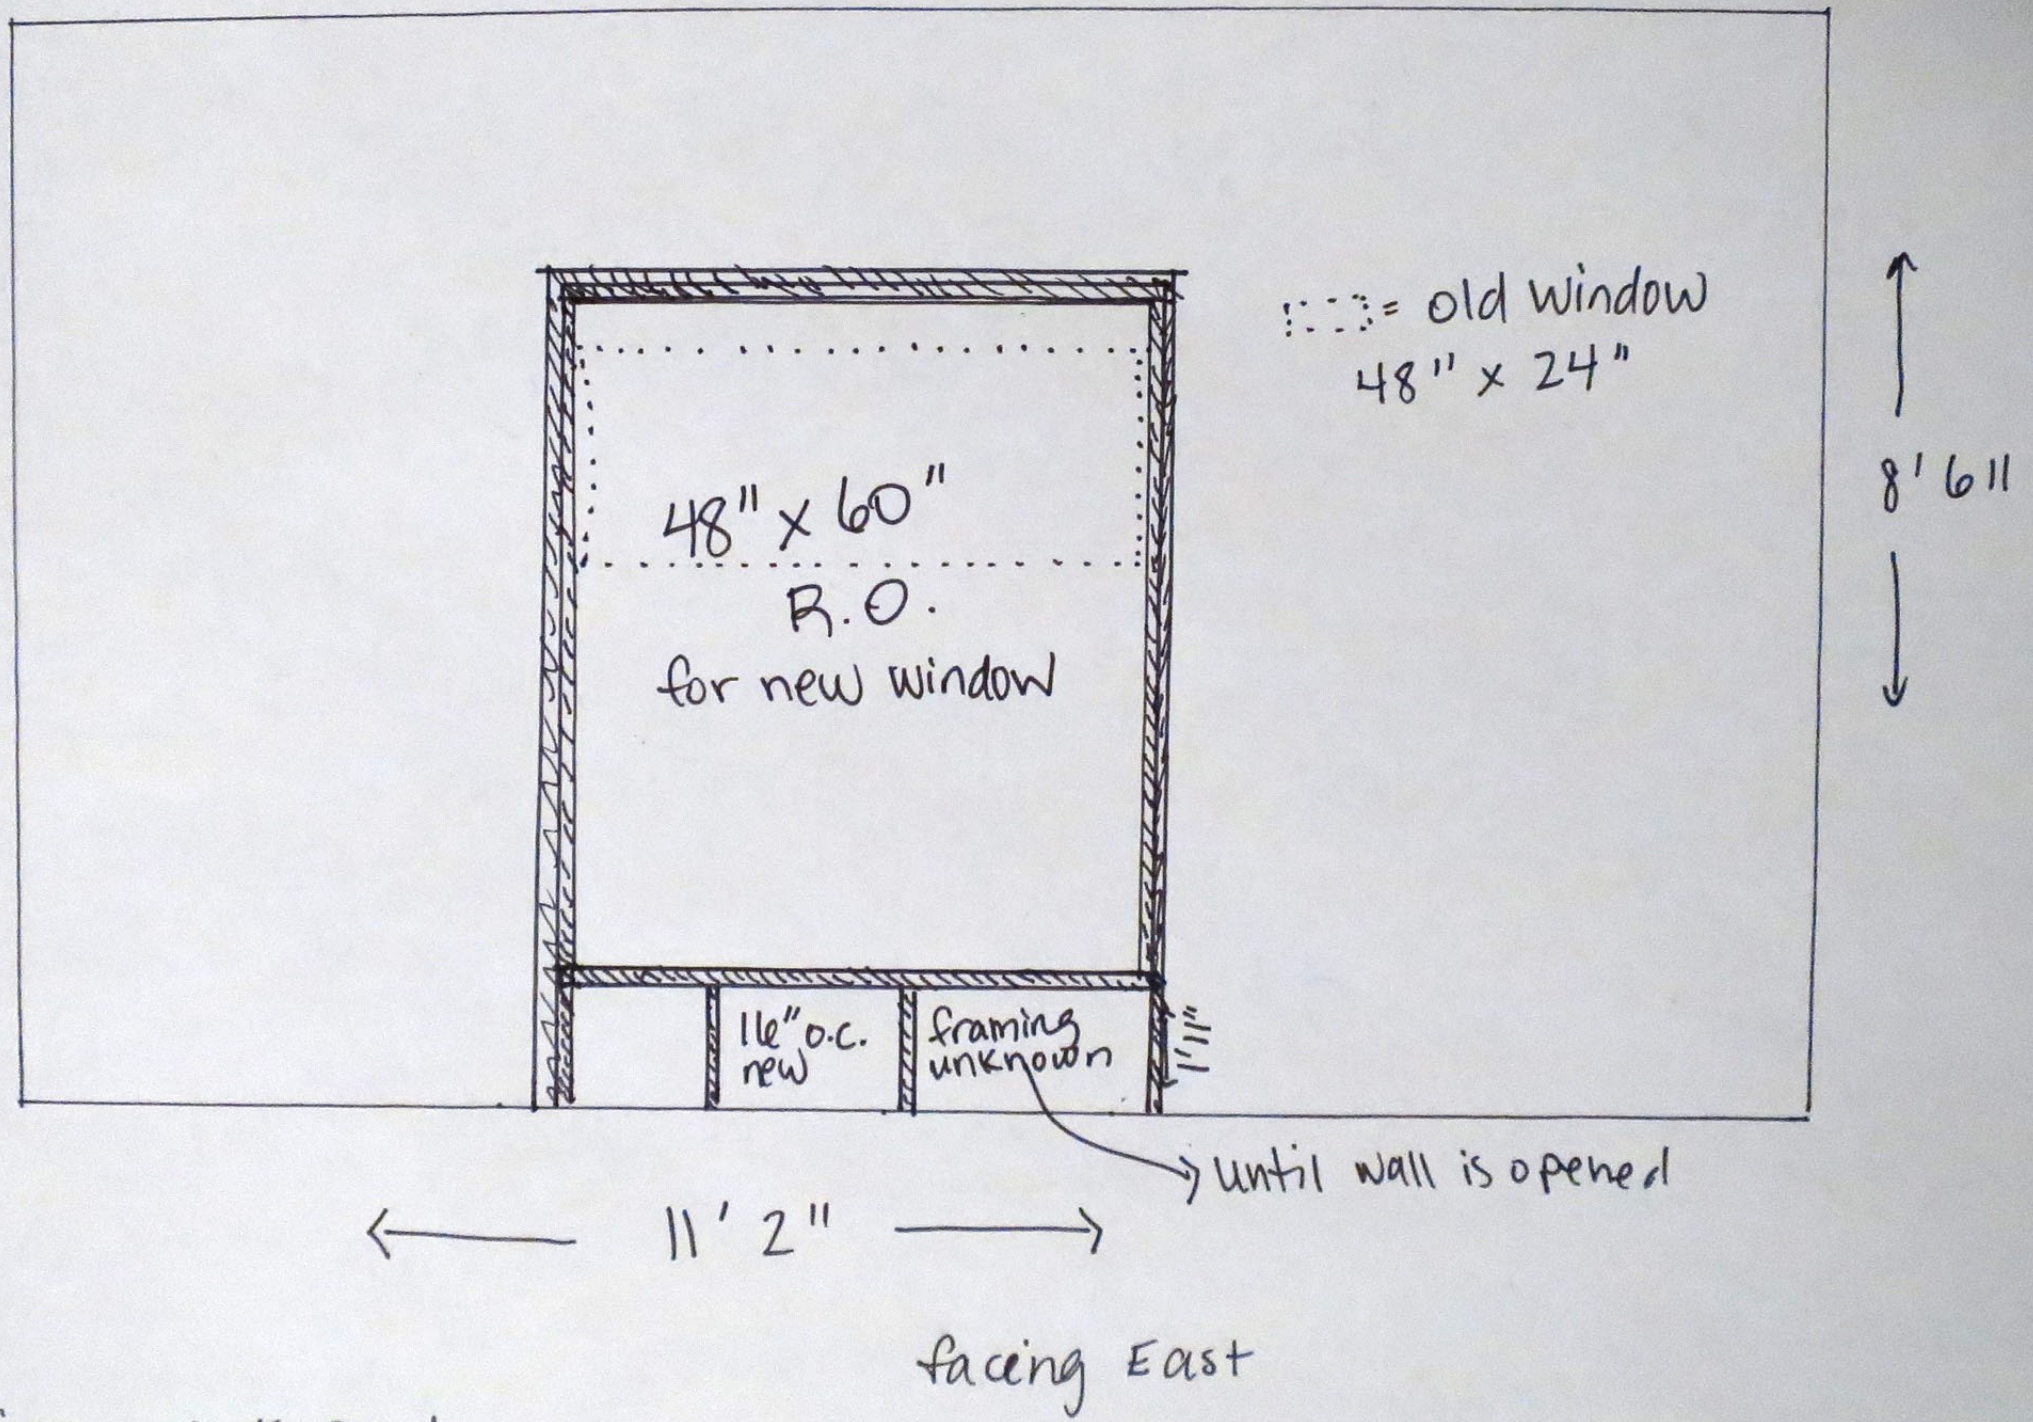 = old window
48" x 24"
8' 6"
48" x 60"
R.O.
for new window
16" o.c.
new
framing
unknown
1'11"
until wall is opened
11' 2"
facing East